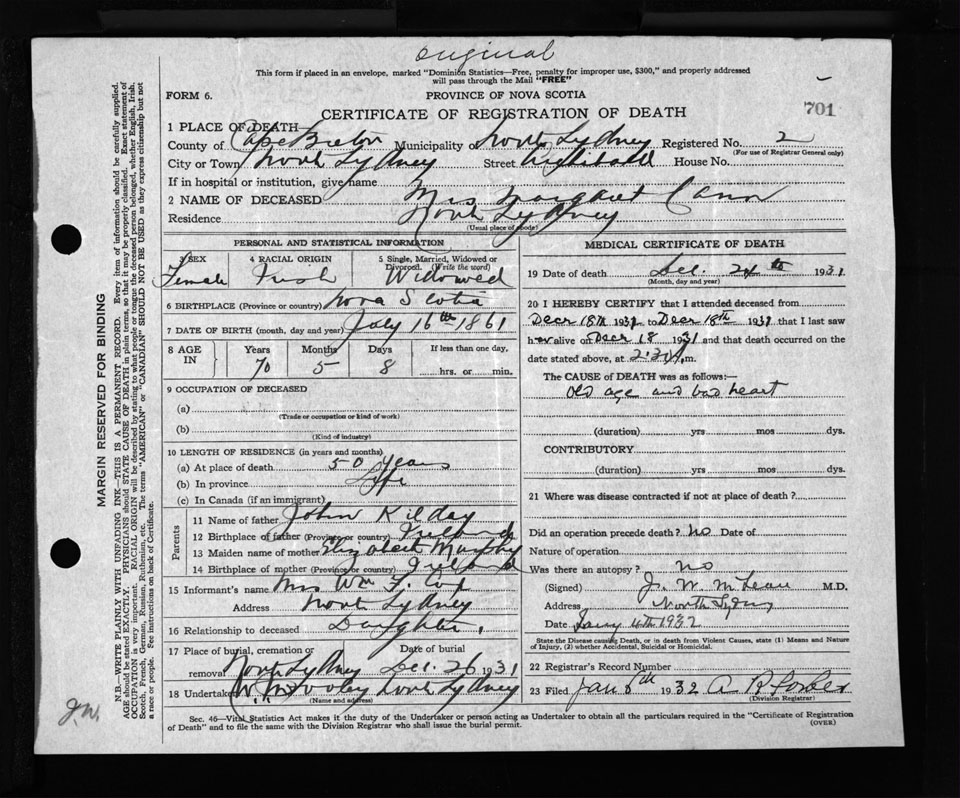 original
This form if placed in an envelope, marked "Dominion Statistics—Free, penalty for improper use, $300," and properly addressed
will pass through the Mail "FREE"
FORM 6.
PROVINCE OF NOVA SCOTIA
701
CERTIFICATE OF REGISTRATION OF DEATH
1 PLACE OF DEATH
County of Cape Breton Municipality of North Sydney Registered No. 2
(For use of Registrar General only)
City or Town North Sydney Street Archibald House No.
If in hospital or institution, give name
2 NAME OF DECEASED Mrs Margaret Cann
Residence North Sydney
(Usual place of abode)
PERSONAL AND STATISTICAL INFORMATION
3 SEX Female
4 RACIAL ORIGIN Irish
5 Single, Married, Widowed or Divorced. (Write the word) Widowed
6 BIRTHPLACE (Province or country) Nova Scotia
7 DATE OF BIRTH (month, day and year) July 16th 1861
8 AGE IN Years Months Days If less than one day,
70 5 8 hrs. or min.
9 OCCUPATION OF DECEASED
(a)
(Trade or occupation or kind of work)
(b)
(Kind of industry)
10 LENGTH OF RESIDENCE (in years and months)
(a) At place of death 50 years
(b) In province Life
(c) In Canada (if an immigrant)
Parents
11 Name of father John Kilday
12 Birthplace of father (Province or country) Ireland
13 Maiden name of mother Elizabeth Murphy
14 Birthplace of mother (Province or country) Ireland
15 Informant's name Mrs Wm F.
Address North Sydney
16 Relationship to deceased Daughter.
17 Place of burial, cremation or removal North Sydney Date of burial Dec. 26 1931
18 Undertaker North Sydney
(Name and address)
MEDICAL CERTIFICATE OF DEATH
19 Date of death Dec. 24th 1931
(Month, day and year)
20 I HEREBY CERTIFY that I attended deceased from
Decr 18th 1931 to Decr 18th 1931 that I last saw
her alive on Decr 18 1931 and that death occurred on the
date stated above, at 2:30 A.m.
The CAUSE of DEATH was as follows:—
Old age and bad heart
(duration) yrs mos dys.
CONTRIBUTORY
(duration) yrs mos dys.
21 Where was disease contracted if not at place of death?
Did an operation precede death? no Date of
Nature of operation
Was there an autopsy? no
(Signed) J. W. McLean M.D.
Address North Sydney
Date Jany 4th 1932
State the Disease causing Death, or in death from Violent Causes, state (1) Means and Nature
of Injury, (2) whether Accidental, Suicidal or Homicidal.
22 Registrar's Record Number
23 Filed Jan 8th 1932 A R Forbes
(Division Registrar)
Sec. 46—Vital Statistics Act makes it the duty of the Undertaker or person acting as Undertaker to obtain all the particulars required in the "Certificate of Registration
of Death" and to file the same with the Division Registrar who shall issue the burial permit.
(OVER)
MARGIN RESERVED FOR BINDING
N.B.—WRITE PLAINLY WITH UNFADING INK—THIS IS A PERMANENT RECORD. Every item of information should be carefully supplied.
AGE should be stated EXACTLY. PHYSICIANS should STATE CAUSE OF DEATH in plain terms, so that it may be properly classified. Exact statement of
OCCUPATION is very important. RACIAL ORIGIN will be described by stating to what people or tongue the deceased person belonged, whether English, Irish,
Scotch, French, German, Russian, Ruthenian, etc. The terms "AMERICAN" or "CANADIAN" SHOULD NOT BE USED as they express citizenship but not
a race or people. See instructions on back of Certificate.
J.W.